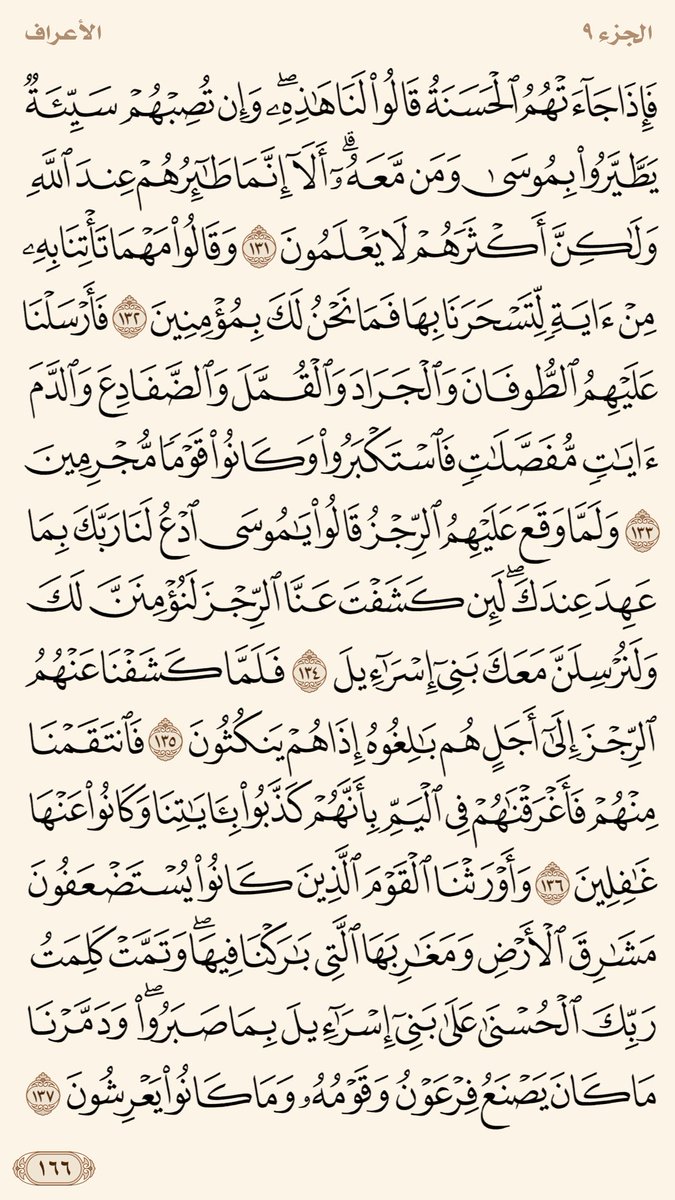 الجزء ٩
الأعراف
فَإِذَا جَآءَتْهُمُ ٱلْحَسَنَةُ قَالُوا۟ لَنَا هَٰذِهِۦۖ وَإِن تُصِبْهُمْ سَيِّئَةٌ
يَطَّيَّرُوا۟ بِمُوسَىٰ وَمَن مَّعَهُۥٓۗ أَلَآ إِنَّمَا طَٰٓئِرُهُمْ عِندَ ٱللَّهِ
وَلَٰكِنَّ أَكْثَرَهُمْ لَا يَعْلَمُونَ ١٣١ وَقَالُوا۟ مَهْمَا تَأْتِنَا بِهِۦ
مِنْ ءَايَةٍ لِّتَسْحَرَنَا بِهَا فَمَا نَحْنُ لَكَ بِمُؤْمِنِينَ ١٣٢ فَأَرْسَلْنَا
عَلَيْهِمُ ٱلطُّوفَانَ وَٱلْجَرَادَ وَٱلْقُمَّلَ وَٱلضَّفَادِعَ وَٱلدَّمَ
ءَايَٰتٍ مُّفَصَّلَٰتٍ فَٱسْتَكْبَرُوا۟ وَكَانُوا۟ قَوْمًا مُّجْرِمِينَ
١٣٣ وَلَمَّا وَقَعَ عَلَيْهِمُ ٱلرِّجْزُ قَالُوا۟ يَٰمُوسَى ٱدْعُ لَنَا رَبَّكَ بِمَا
عَهِدَ عِندَكَۖ لَئِن كَشَفْتَ عَنَّا ٱلرِّجْزَ لَنُؤْمِنَنَّ لَكَ
وَلَنُرْسِلَنَّ مَعَكَ بَنِىٓ إِسْرَٰٓءِيلَ ١٣٤ فَلَمَّا كَشَفْنَا عَنْهُمُ
ٱلرِّجْزَ إِلَىٰٓ أَجَلٍ هُم بَٰلِغُوهُ إِذَا هُمْ يَنكُثُونَ ١٣٥ فَٱنتَقَمْنَا
مِنْهُمْ فَأَغْرَقْنَٰهُمْ فِى ٱلْيَمِّ بِأَنَّهُمْ كَذَّبُوا۟ بِـَٔايَٰتِنَا وَكَانُوا۟ عَنْهَا
غَٰفِلِينَ ١٣٦ وَأَوْرَثْنَا ٱلْقَوْمَ ٱلَّذِينَ كَانُوا۟ يُسْتَضْعَفُونَ
مَشَٰرِقَ ٱلْأَرْضِ وَمَغَٰرِبَهَا ٱلَّتِى بَٰرَكْنَا فِيهَاۖ وَتَمَّتْ كَلِمَتُ
رَبِّكَ ٱلْحُسْنَىٰ عَلَىٰ بَنِىٓ إِسْرَٰٓءِيلَ بِمَا صَبَرُوا۟ۖ وَدَمَّرْنَا
مَا كَانَ يَصْنَعُ فِرْعَوْنُ وَقَوْمُهُۥ وَمَا كَانُوا۟ يَعْرِشُونَ ١٣٧
١٦٦